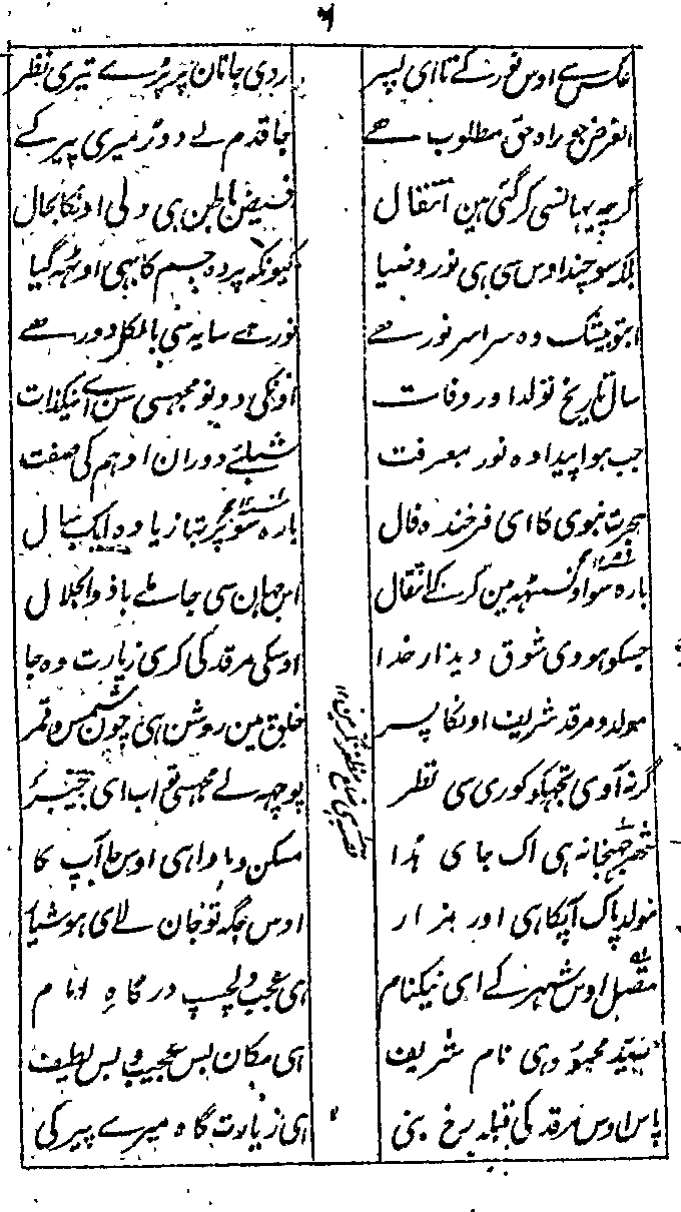 ۶
عکس سے اوس نور کے تا ای پسر	روی جانان پر پڑے تیری نظر
الغرض جو راہ حق مطلوب ہے	جا قدم لے دوڑ میری پیر کے
گرچہ یہانسی کر گئی ہین انتقال	فیض باطن ہی ولی اونکا بحال
بلکہ سوچند اوس سی ہی نور و ضیا	کیونکہ پردہ جسم کا بہی اوٹہہ گیا
ابتو بیشک وہ سراسر نور ہے	نور ہے سایہ سی بالکل دور ہے
سال تاریخ تولد اور وفات	اونکی دونو مجہسی سن لے نیکذات
جب ہوا پیدا وہ نور معرفت	شبلئے دوران ادہم کی صفت
ہجرت نبوی کا ای فرخندہ فال	بارہ سو پر تہا زیادہ ایک سال
بارہ سو اونسٹہہ مین کر کے انتقال	اس جہان سی جا ملے باذوالجلال
جسکو ہووی شوق دیدار خدا	اوسکی مرقد کی کری زیارت وہ جا
مولد و مرقد شریف اونکا پسر	خلق مین روشن ہی چون شمس و قمر
گر نہ آوی تجہکو کوری سی نظر	پوچہہ لے مجہسی تو اب ای بیخبر
شہر جہنجانہ ہی اک جای ہدا	مسکن و ماوا ہی اوس جا آپ کا
مولد پاک آپکا ہی اور مزار	اوس جگہ تو جان لے ای ہوشیار
متصل اوس شہر کے ای نیکنام	ہی عجب دلچسپ درگاہ امام
سید محمود ہی نام شریف	ہی مکان بس عجیب و بس لطیف
پاس اوس مرقد کی قبلہ رخ بنی	ہی زیارت گاہ میرے پیر کی
قصبہ ہی ضلع مظفرنگر مین ۱۲